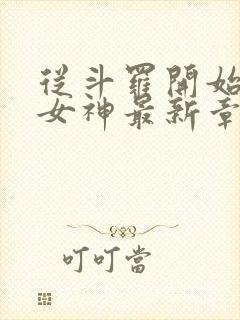 從斗羅開始
女神最新章
叮叮當